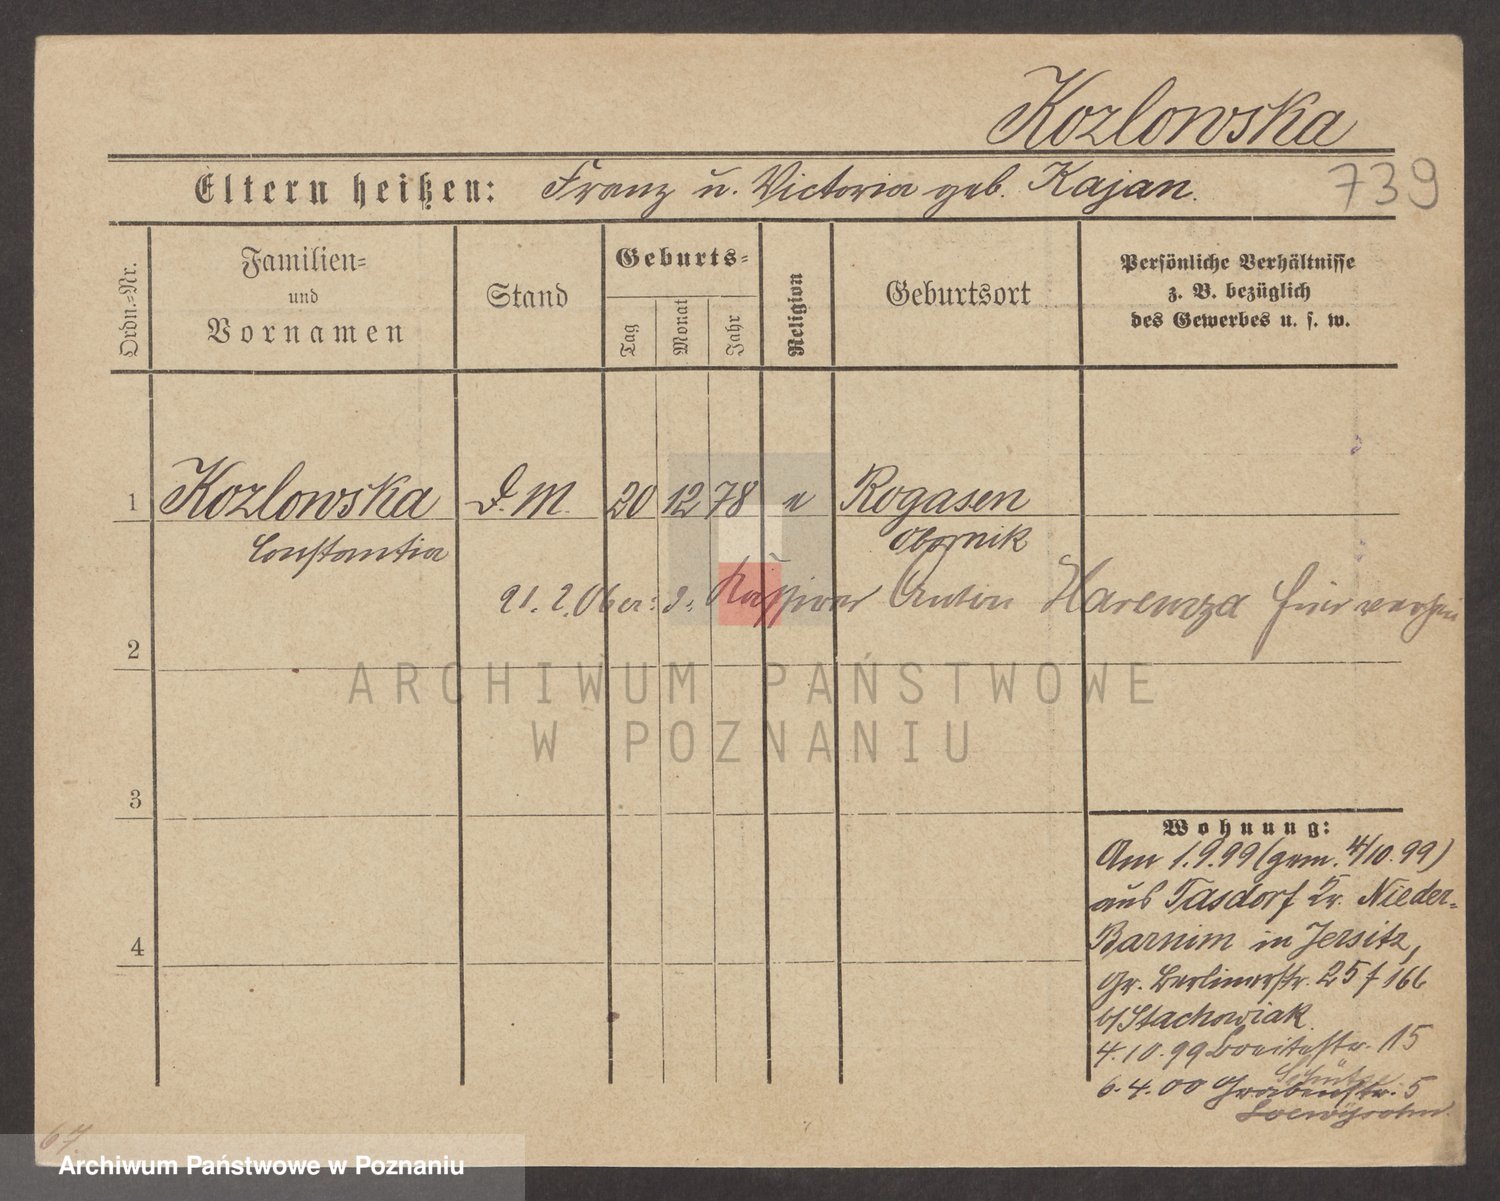 Kozlowska
Eltern heißen: Franz u. Victoria geb. Kajan.
739
Ordn.=Nr.
Familien=
und
Vornamen
Stand
Geburts=
Tag
Monat
Jahr
Religion
Geburtsort
Persönliche Verhältnisse
z. B. bezüglich
des Gewerbes u. s. w.
1 Kozlowska D. M. 20 12 78 Rogasen
Constantia Obornik
21. 2. Anton
2
ARCHIWUM PAŃSTWOWE
W POZNANIU
3
Wohnung:
Am 1.9.99 (gem. 4/10.99)
aus Tasdorf Kr. Nieder-
4
Barnim in Jersitz,
Gr. Berlinerstr. 25 f 166
b/ Stachowiak
4.10.99 Breitestr. 15
6.4.00 Grabenstr. 5
67.
Archiwum Państwowe w Poznaniu